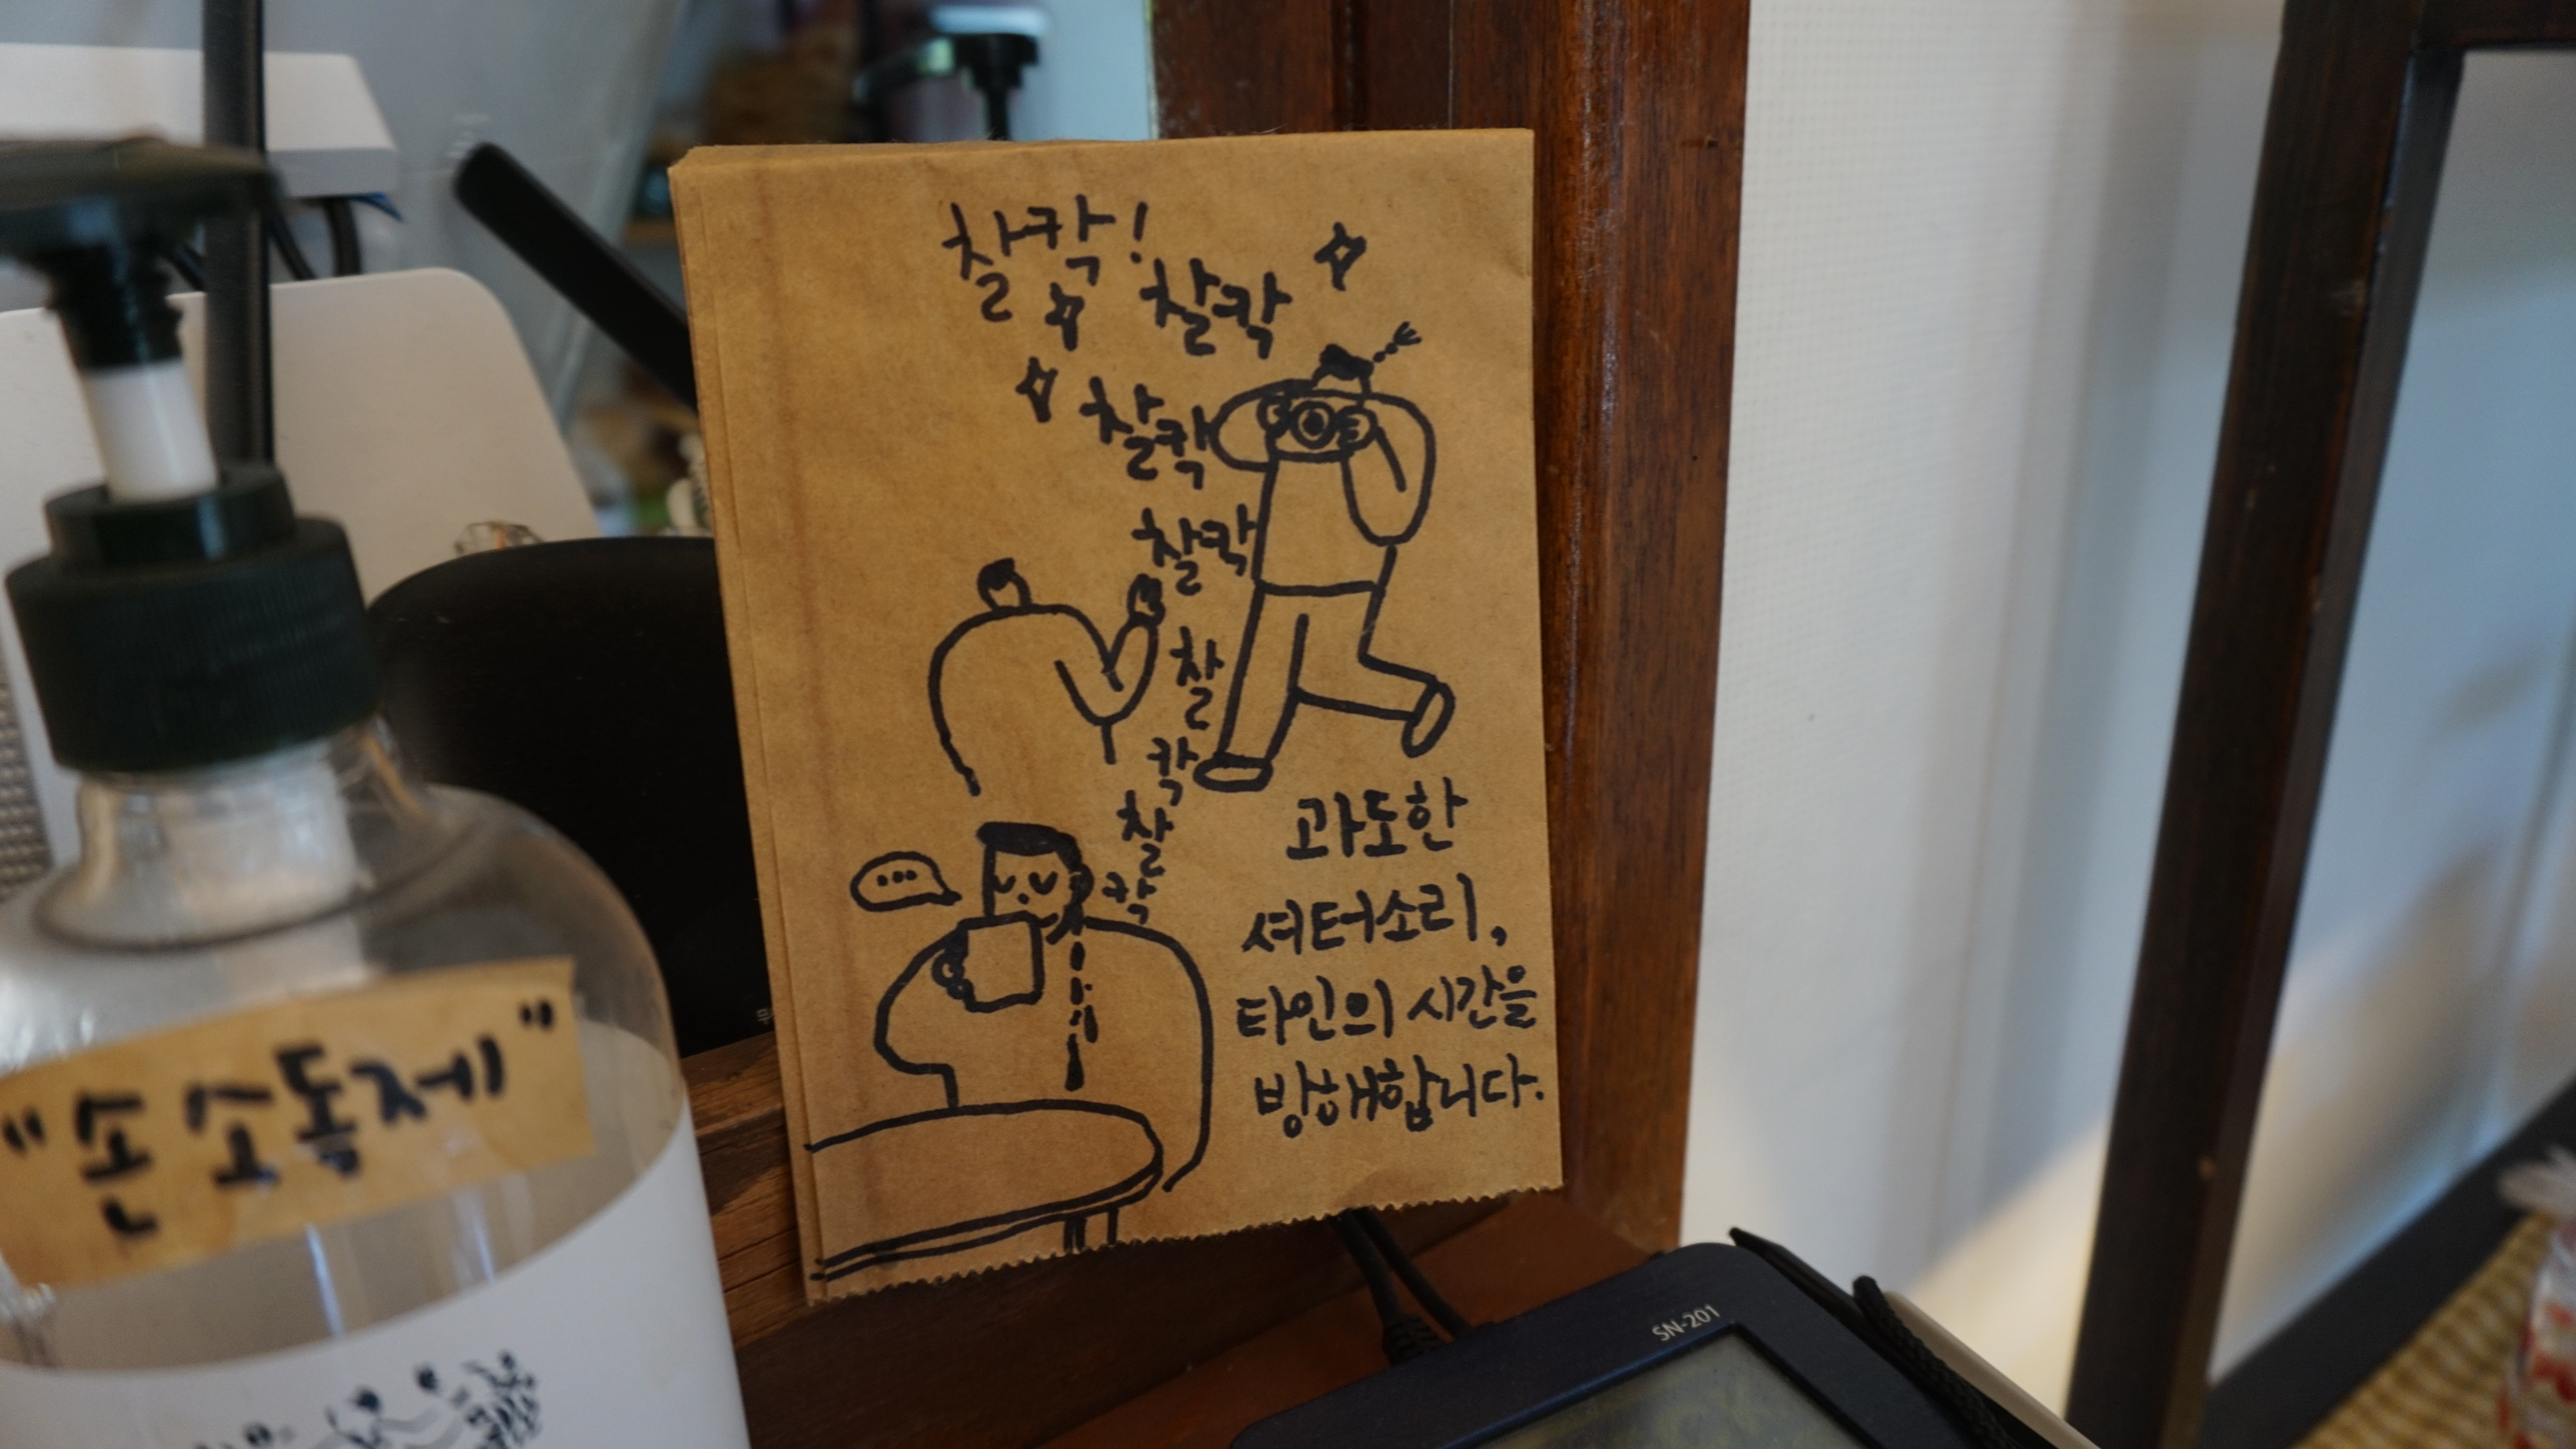 찰칵!
찰칵
찰칵
찰칵
찰
칵
찰
칵
과도한
셔터소리,
타인의 시간을
방해합니다.
"손소독제"
SN-201